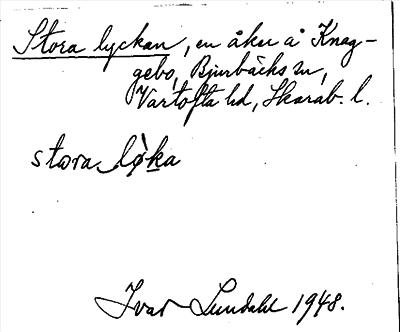 Stora lyckan, en åker å Knag-
gebo, Bjurbäcks sn,
Vartofta hd, Skarab. l.
stora lø̀ka
Ivar Lundahl 1948.